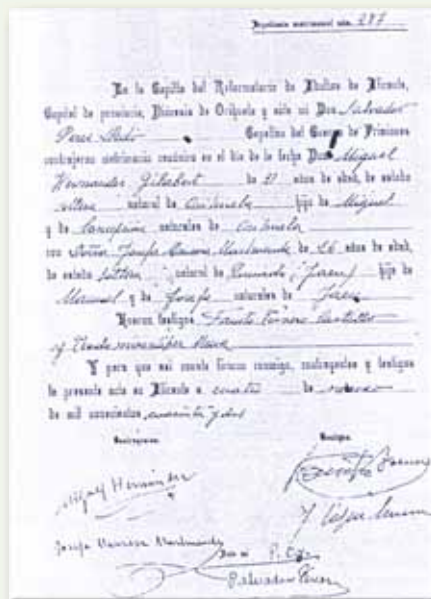 Expediente matrimonial núm. 287
En la Capilla del Reformatorio de Adultos de Alicante,
Capital de provincia, Diócesis de Orihuela y ante mi Don Salvador
Perez Capellán del Cuerpo de Prisiones
contrajeron matrimonio canónico en el día de la fecha Don Miguel
Hernandez Gilabert de 31 años de edad, de estado
soltero natural de Orihuela hijo de Miguel
y de Concepción naturales de Orihuela
con Doña Josefa Manresa Marhuenda de 26 años de edad,
de estado soltera natural de Quesada (Jaen) hija de
Manuel y de Josefa naturales de Jaen
Fueron testigos Fausto
y
Y para que así conste firman conmigo, contrayentes y testigos
la presente acta en Alicante a cuatro de
de mil novecientos cuarenta y dos
Contrayentes, Testigos,
Miguel Hernández
Josefa Manresa Marhuenda
Salvador Pérez